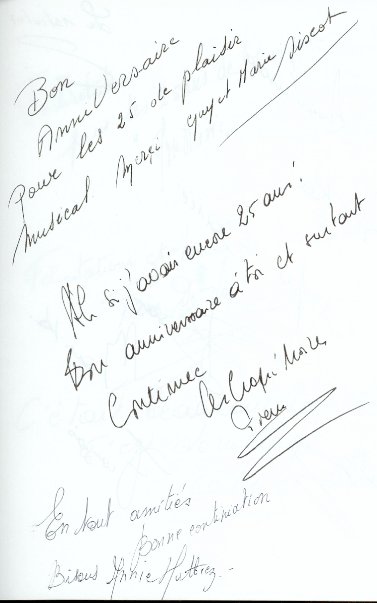 Bon
Anniversaire
Pour les 25 de plaisir
musical Merci Guy et Marie
Ah si j'avais encore 25 ans!
Bon anniversaire à toi et surtout
Continuez
En tout amitiés
Bonne continuation
Bisous Annie